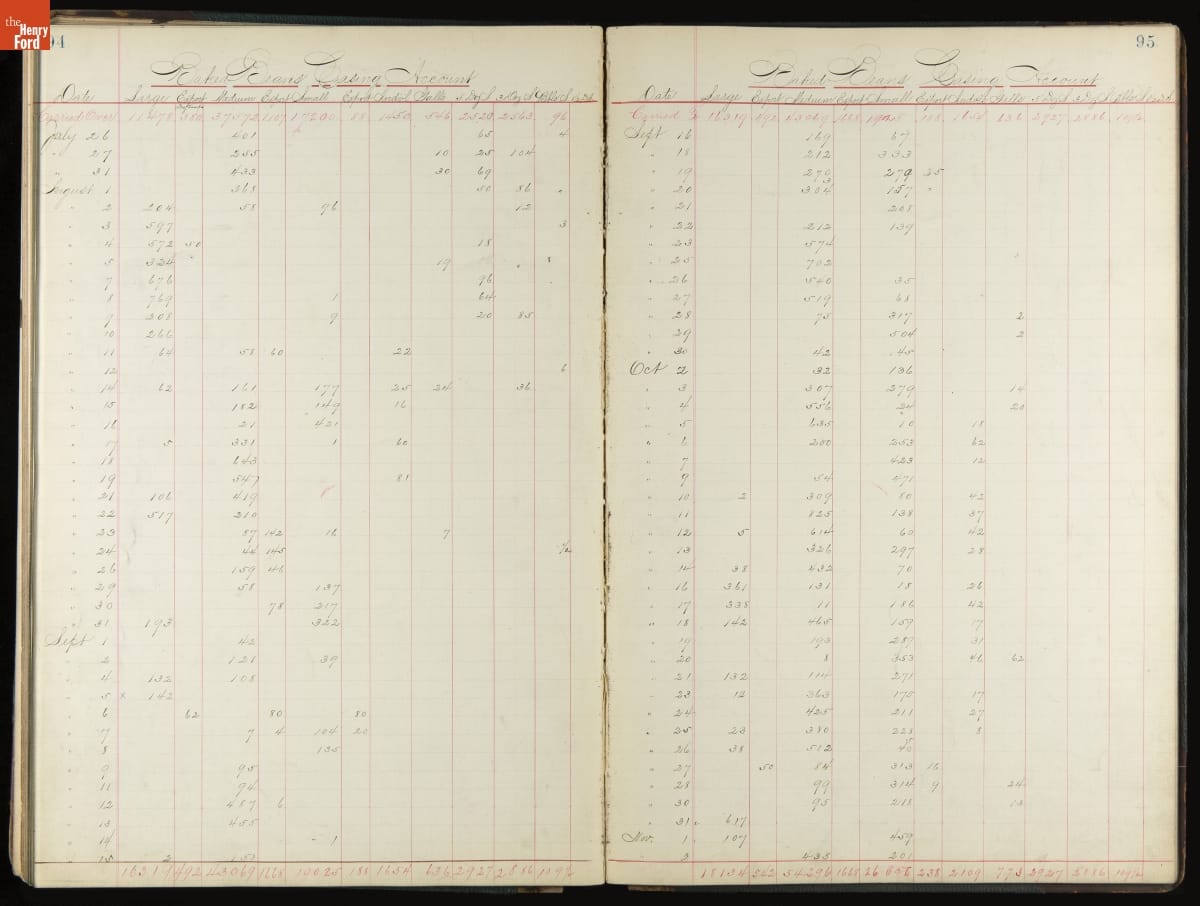 the
Henry
Ford
94
Baked Beans Casing Account
Date Large Export Medium Export Small Export
Carried Over 11478 380 37572 1107 17200 88 1450 546 2520 2563 96
July 26 401 65 4
" 27 255 10 25 104
" 31 433 30 69
August 1 368 50 86 "
" 2 204 58 96 12
" 3 597 3
" 4 572 50 18
" 5 324 19
" 7 676 96
" 8 769 1 64
" 9 308 9 20 85
" 10 266
" 11 64 58 60 22
" 12 6
" 14 62 161 177 25 24 36
" 15 182 149 16
" 16 21 421
" 17 5 331 1 60
" 18 643
" 19 547 81
" 21 106 419
" 22 517 210
" 23 87 142 16 7
" 24 44 145 1/2
" 26 159 46
" 29 58 137
" 30 78 217
" 31 193 322
Sept 1 42
" 2 121 39
" 4 132 108
" 5 x 142
" 6 62 80 80
" 7 7 4 104 20
" 8 135
" 9 95
" 11 94
" 12 487 6
" 13 455
" 14 1
" 15 2 151
16319 492 43069 1668 19025 188 1654 636 2927 2886 109 1/2
95
Baked Beans Casing Account
Date Large Export Medium Export Small Export
Carried 16319 492 43069 1668 19025 188 1654 636 2927 2886 109 1/2
Sept 16 169 67
" 18 212 333
" 19 270 279 35
" 20 304 157 "
" 21 208
" 22 212 139
" 23 574
" 25 702
" 26 540 35
" 27 519 68
" 28 75 317 2
" 29 504 2
" 30 42 45
Oct 2 32 136
" 3 307 279 14
" 4 556 24 20
" 5 635 10 18
" 6 200 253 62
" 7 423 12
" 9 54 471
" 10 2 309 80 42
" 11 825 138 37
" 12 5 614 60 42
" 13 326 297 28
" 14 38 432 70
" 16 361 131 18 26
" 17 338 11 186 42
" 18 142 465 159 17
" 19 193 287 31
" 20 8 353 46 62
" 21 132 114 271
" 23 12 363 175 17
" 24 425 211 27
" 25 23 380 228 8
" 26 38 512 40
" 27 50 84 313 16
" 28 99 314 9 24
" 30 95 218 13
" 31 617
Nov. 1 107 459
" 2 435 201
18134 542 54296 1668 26656 238 2109 773 2927 2886 109 1/2